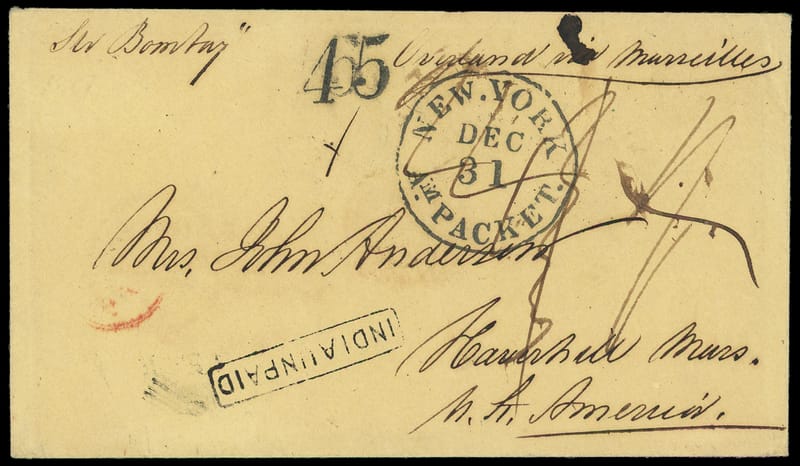 Str Bombay"
45
Overland via Marseilles
NEW. YORK
DEC
31
AM. PACKET.
Mrs. John Anderson
INDIA UNPAID
Haverhill Mass.
N. A. America.